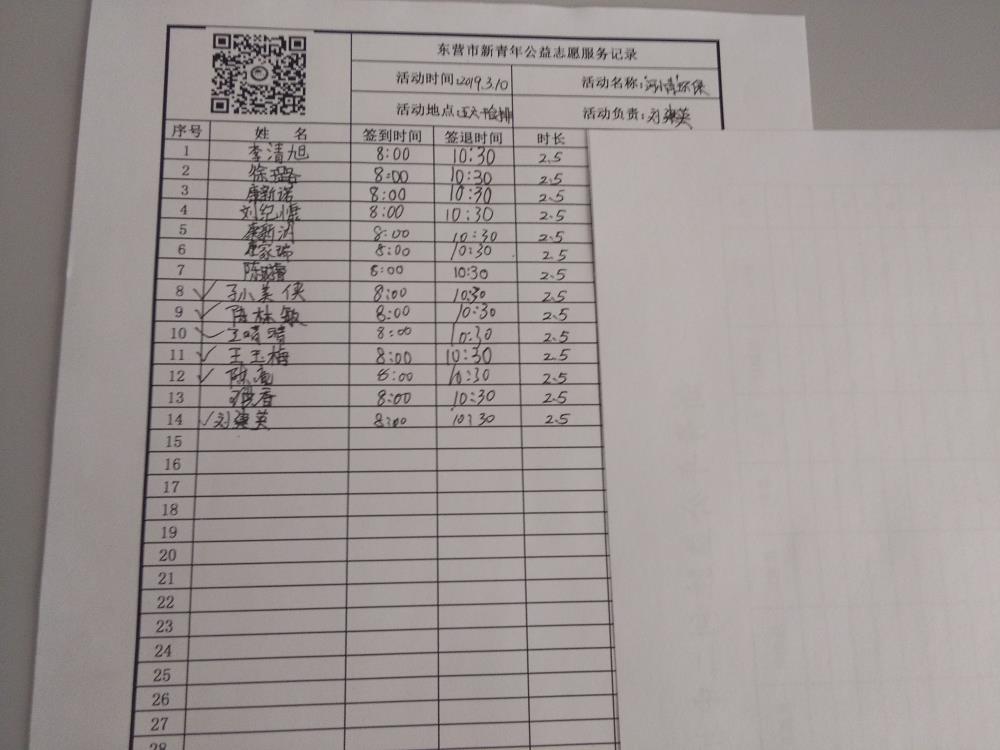 东营市新青年公益志愿服务记录
活动时间:2019.3.10 活动名称:河小青环保
活动地点: 活动负责:刘爽英
序号 姓 名 签到时间 签退时间 时长
1 李清旭 8:00 10:30 2.5
2 徐璐 8:00 10:30 2.5
3 康新诺 8:00 10:30 2.5
4 刘纪慷 8:00 10:30 2.5
5 康新 8:00 10:30 2.5
6 家瑞 8:00 10:30 2.5
7 陈 8:00 10:30 2.5
8 ✓ 孙美侠 8:00 10:30 2.5
9 ✓ 陈林敏 8:00 10:30 2.5
10 ✓ 王晴晴 8:00 10:30 2.5
11 ✓ 王玉梅 8:00 10:30 2.5
12 ✓ 陈亮 8:00 10:30 2.5
13 香 8:00 10:30 2.5
14 ✓ 刘爽英 8:00 10:30 2.5
15
16
17
18
19
20
21
22
23
24
25
26
27
28